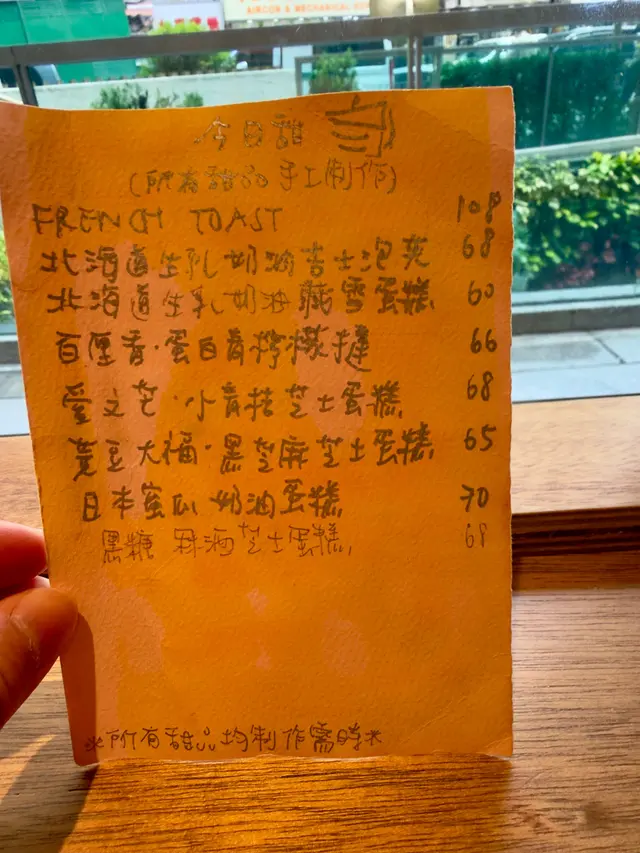 AIRCON & MECHANICAL
今日甜
(所有甜品手工制作)
FRENCH TOAST 108
北海道生乳奶油吉士泡芙 68
北海道生乳奶油藏雪蛋糕 60
百厘香·蛋白脊檸檬撻 66
愛文芒·小青桔芝士蛋糕 68
黄豆大福·黑芝麻芝士蛋糕 65
日本蜜瓜奶油蛋糕 70
黑糖 酒芝士蛋糕 68
*所有甜品均制作需時*